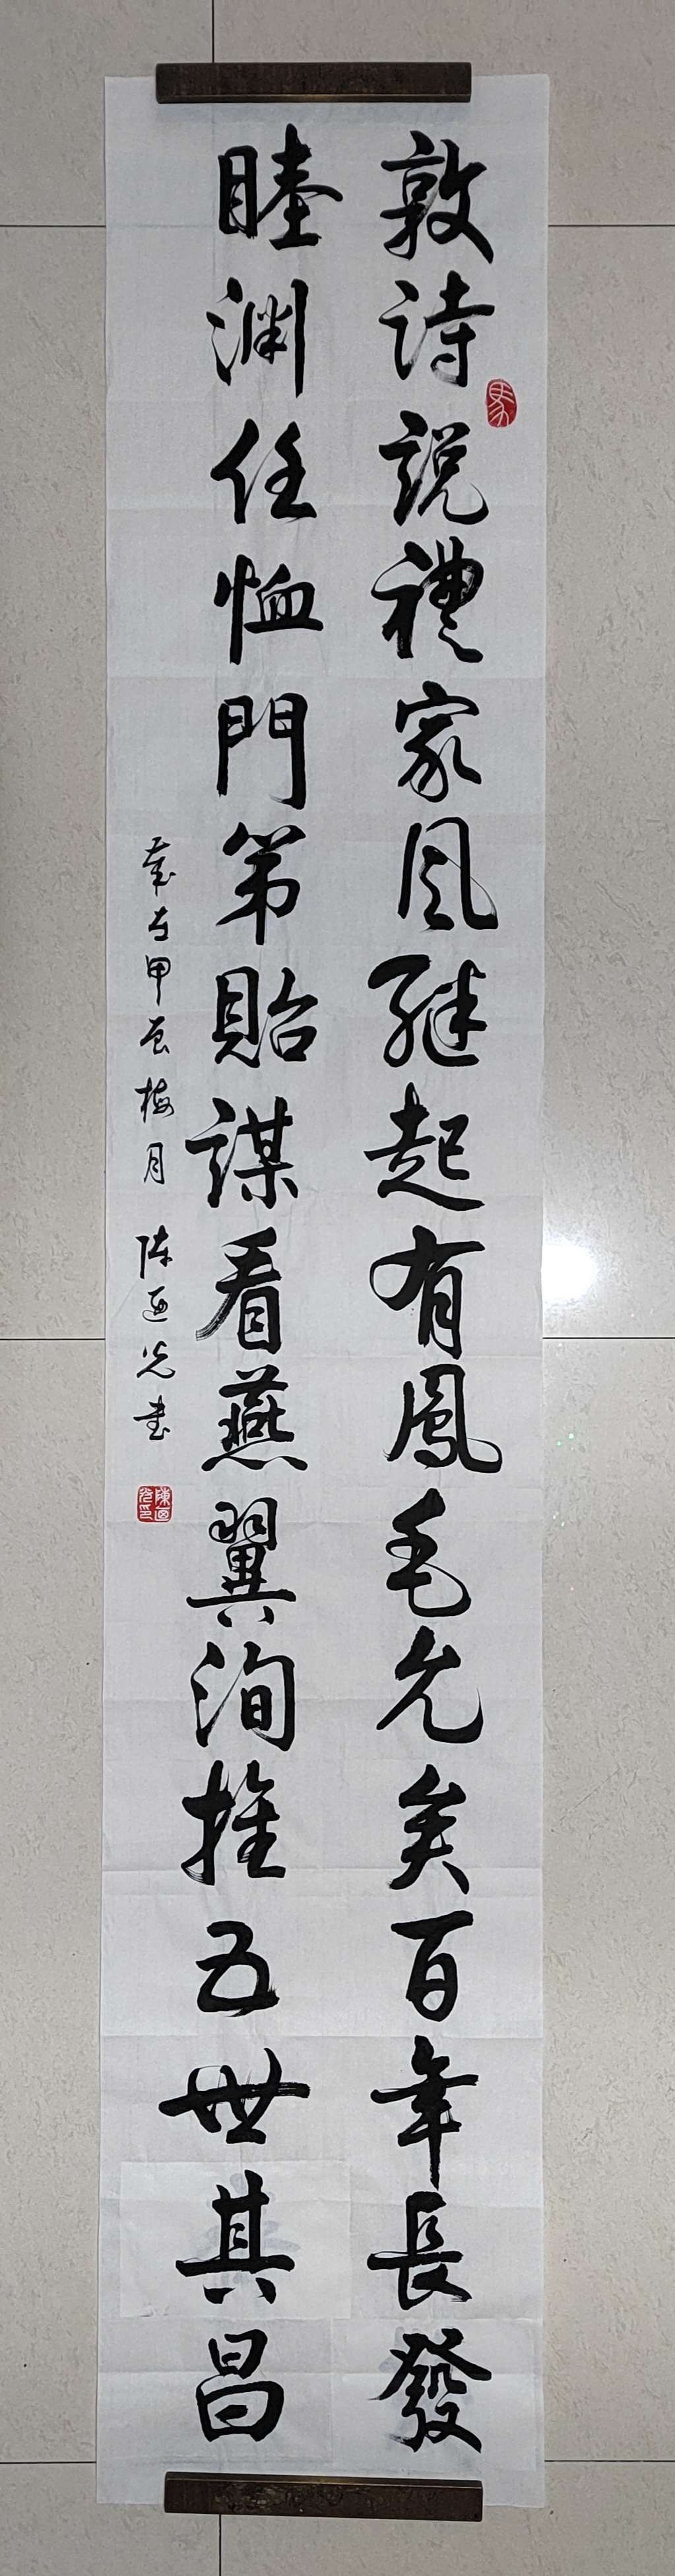 敦诗説禮家風继起有鳳毛允矣百年長發
睦渊任恤門第貽謀看燕翼洵推五世其昌
歲在甲辰梅月 陈迺光書
陳迺光印